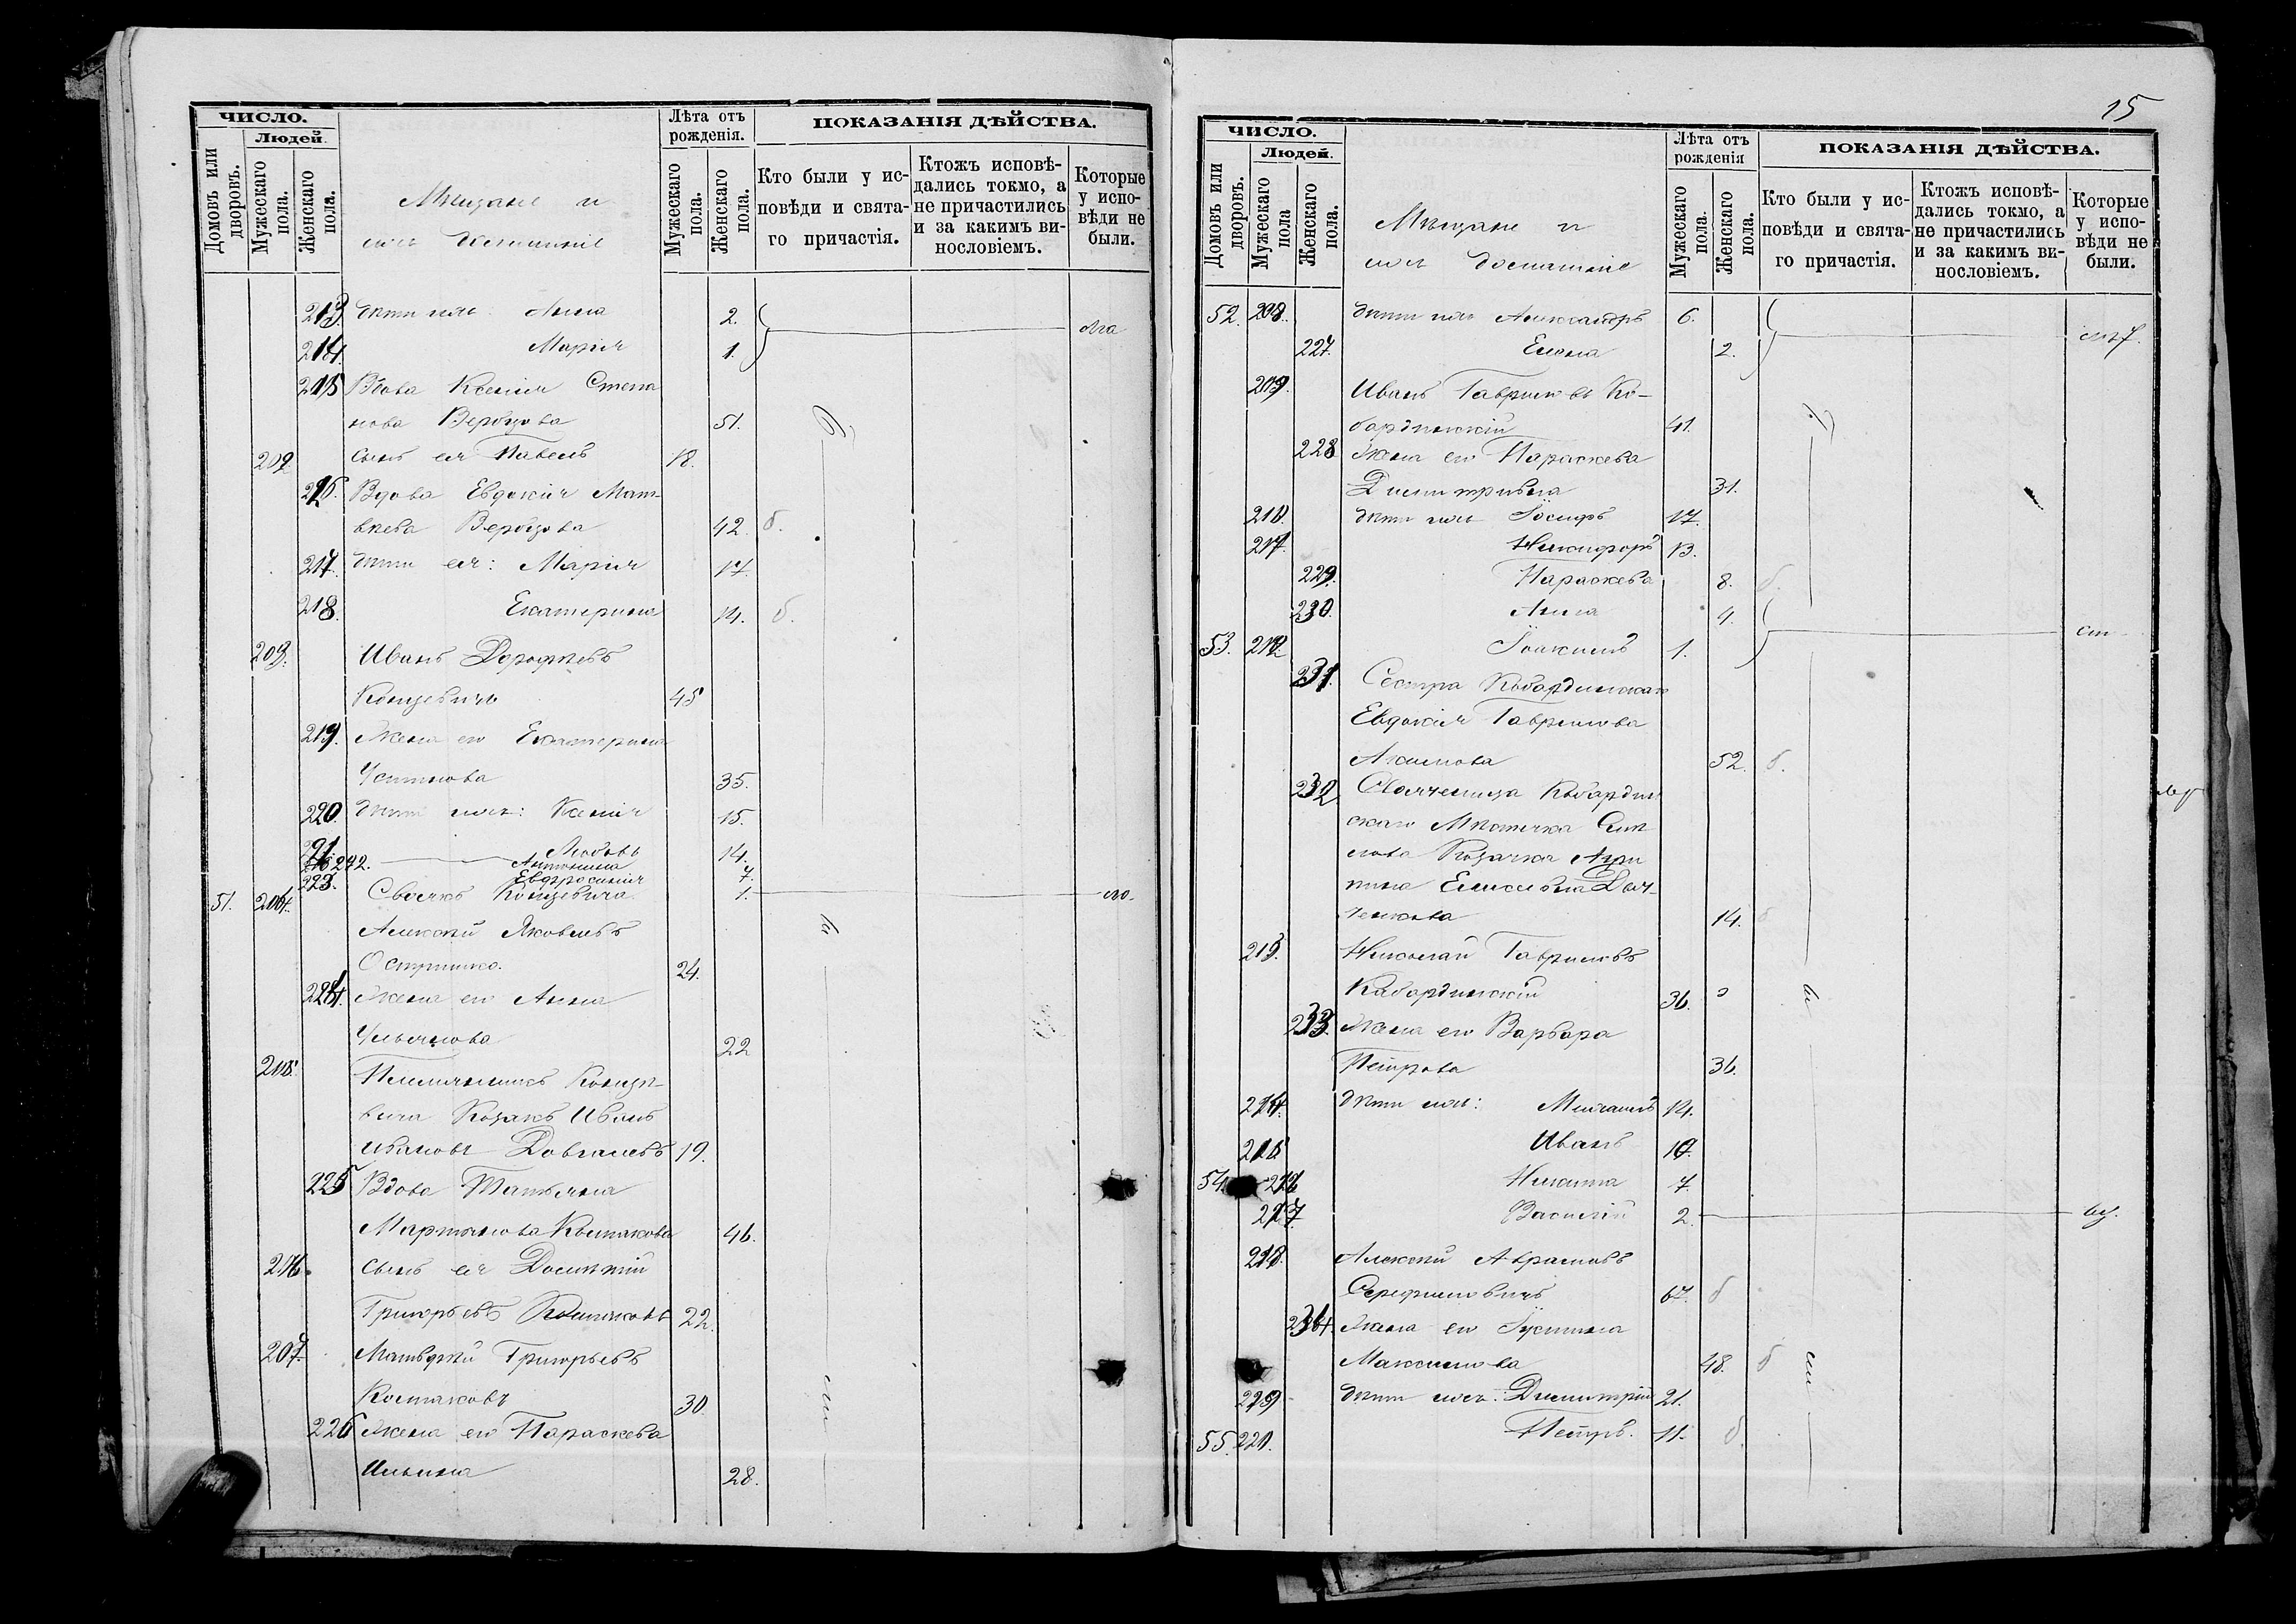 ЧИСЛО.
Людей.
Домовъ или дворовъ.
Мужескаго пола.
Женскаго пола.
Мѣщане и
ихъ домашніе
Лѣта отъ рожденія.
Мужескаго пола.
Женскаго пола.
ПОКАЗАНІЯ ДѢЙСТВА.
Кто были у исповѣди и святаго причастія.
Ктожъ исповѣдались токмо, а не причастились и за какимъ винословіемъ.
Которые у исповѣди не были.
213. дѣти ихъ Анна 2.
214. Марія 1.
215 Вдова Ксенія Степа
нова Вербцова 51.
202 сынъ ея Павелъ 18.
216. Вдова Евдокія Мат-
вѣева Вербцова 42. б.
217. дѣти ея: Марія 17.
218. Екатерина 14. б.
203. Иванъ Дорофѣевъ
Концевичъ 45
219. Жена его Екатерина
Устинова 35.
220. дѣти ихъ: Ксенія 15.
Любовь 14.
Антонина 7.
223. Евфросинія 1.
51. 204. Своякъ Концевича
Алексій Яковлевъ
24.
224. Жена его Анна
Ульянова 22
205. Племянникъ Конце-
вича Козакъ Иванъ
Ивановъ 19.
225 Вдова Татьяна
Мартынова 46.
206. сынъ ея
Григорьевъ 22.
207. Матвѣй Григорьевъ
30
226 Жена его Параскева
Ильина 28.
15
ЧИСЛО.
Людей.
Домовъ или дворовъ.
Мужескаго пола
Женскаго пола.
Мѣщане и
ихъ домашніе
Лѣта отъ рожденія
Мужескаго пола.
Женскаго пола.
ПОКАЗАНІЯ ДѢЙСТВА.
Кто были у исповѣди и святаго причастія.
Ктожъ исповѣдались токмо, а не причастились и за какимъ винословіемъ.
Которые у исповѣди не были.
52. 208. дѣти ихъ Александръ 6.
227. Елена 2.
209. Иванъ Гавриловъ Ка-
бардинскій 41.
228 Жена его Параскева
Димитріева 31.
210. дѣти ихъ Іосифъ 17.
211. Никифоръ 13.
229. Параскева 8. б.
230. Анна 4.
53. 212 Іоакимъ 1.
231. Сестра Кабардинскаго
Евдокія Гаврилова
Акимова 52. б.
232 Кабардин
скаго
14. б
213. Николай Гавриловъ
Кабардинскій 36.
233. Жена его Варвара
Петрова 36.
214. дѣти ихъ: Михаилъ 14.
215 Иванъ 10.
54. 216 Никита 7.
217 Василій 2.
218. Алексій Авраамовъ
67. б
234. Жена его Іустина
Максимова 48. б
219 дѣти ихъ: Димитрій 21.
55. 220. Петръ. 11. б.